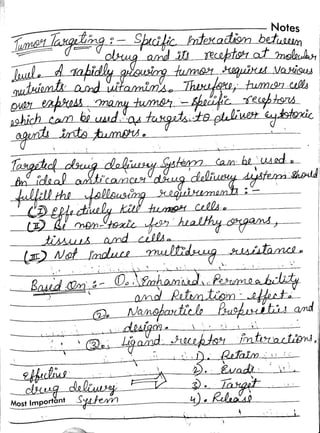 Notes
Tumor Targeting :- Specific Interaction between
drug and its receptor at molecular
level. A rapidly growing tumor requires various
nutrients and vitamins. Therefore, tumor cells
over express many tumor-specific receptors
which can be used as targets to deliver cytotoxic
agents into tumors.
Targeted drug delivery System can be used.
An ideal anticancer drug delivery system should
fulfill the following requirements :-
(I) Effectively kill tumor cells.
(II) Be non-toxic for healthy organs,
tissues and cells.
(III) Not Induce multidrug resistance.
Based On :- ①. Enhanced Permeability
and Retention effect.
②. Nanoparticle Properties and
design.
③. Ligand receptor interactions.
effective
drug delivery
System
1). Retain
2). Evade
3). Target
4). Release
Most Important